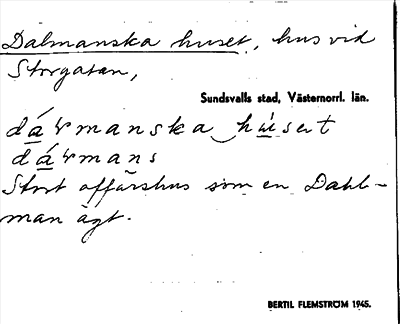 Dalmanska huset, hus vid
Storgatan,
Sundsvalls stad, Västernorrl. län.
dálmanska húset
dálmans
Stort affärshus som en Dahl-
man ägt.
BERTIL FLEMSTRÖM 1945.